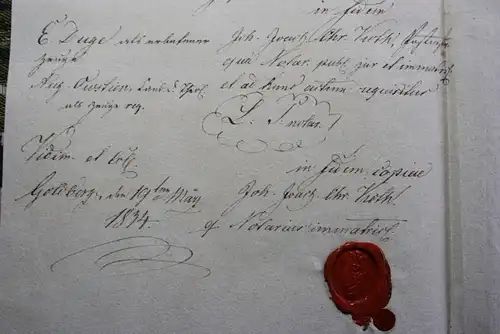 in fidem
E Duge als erbetener
Zeuge
Aug. cand. d. Theol.
als Zeuge req.
Joh. Joach. Chr. Koth,
qua Notar. publ. jur. et immatric.
et ad hunc actum requisitus
L. S. notar.
Vidim. et Coll.
Goldberg, den 19ten May
1834.
in fidem copiae
Joh. Joach. Chr. Koth.
q Notarius immatric.